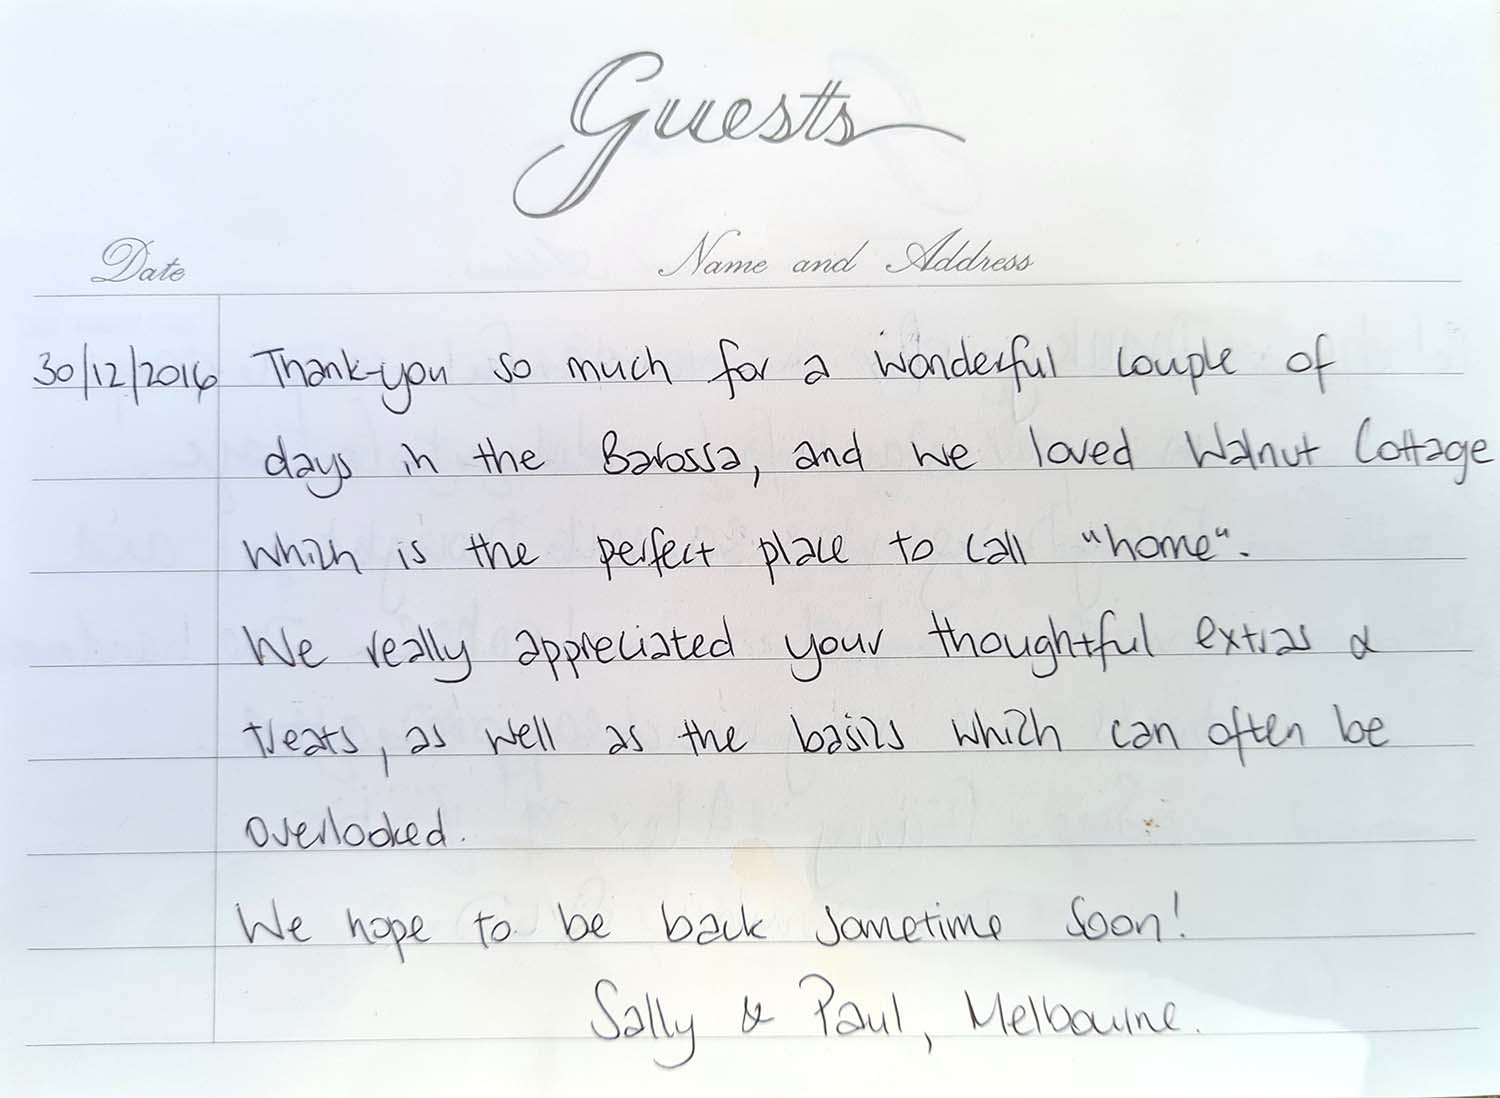 Guests
Date Name and Address
30/12/2016 Thank-you so much for a wonderful couple of
days in the Barossa, and we loved Walnut Cottage
which is the perfect place to call "home".
We really appreciated your thoughtful extras &
treats, as well as the basics which can often be
overlooked.
We hope to be back sometime soon!
Sally & Paul, Melbourne.